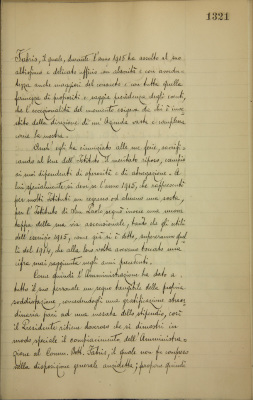 1321
Fabris, il quale, durante l'anno 1915 ha assolto al suo
altissimo e delicato ufficio con elevatezza e con avvedu-
tezza anche maggiori del consueto e con tutta quella
fermezza di propositi e saggia previdenza degli eventi,
che l'eccezionalità del momento esigeva da chi è inve-
stito della direzione di un'Azienda vasta e complessa
come la nostra.
Anch'egli ha rinunziato alle sue ferie, sacrifi-
cando al bene dell'Istituto il meritato riposo, esempio
ai suoi dipendenti di operosità e di abnegazione. A
lui specialmente si deve se l'anno 1915, che rappresentò
per molti Istituti un regresso od almeno una sosta,
per l'Istituto di San Paolo segnò invece una nuova
tappa della sua via ascensionale, tanto che gli utili
dell'esercizio 1915, come già si è detto, superarono quel-
li del 1914, che alla loro volta avevano toccato una
cifra mai raggiunta negli anni precedenti.
Come quindi l'Amministrazione ha dato a
tutto il suo personale un segno tangibile della propria
soddisfazione, concedendogli una gratificazione straor-
dinaria pari ad una mesata dello stipendio, così
il Presidente ritiene doveroso che si dimostri in
modo speciale il compiacimento dell'Amministra-
zione al Comm. Dott. Fabris, il quale non fu compreso
nella disposizione generale anzidetta; propone quindi